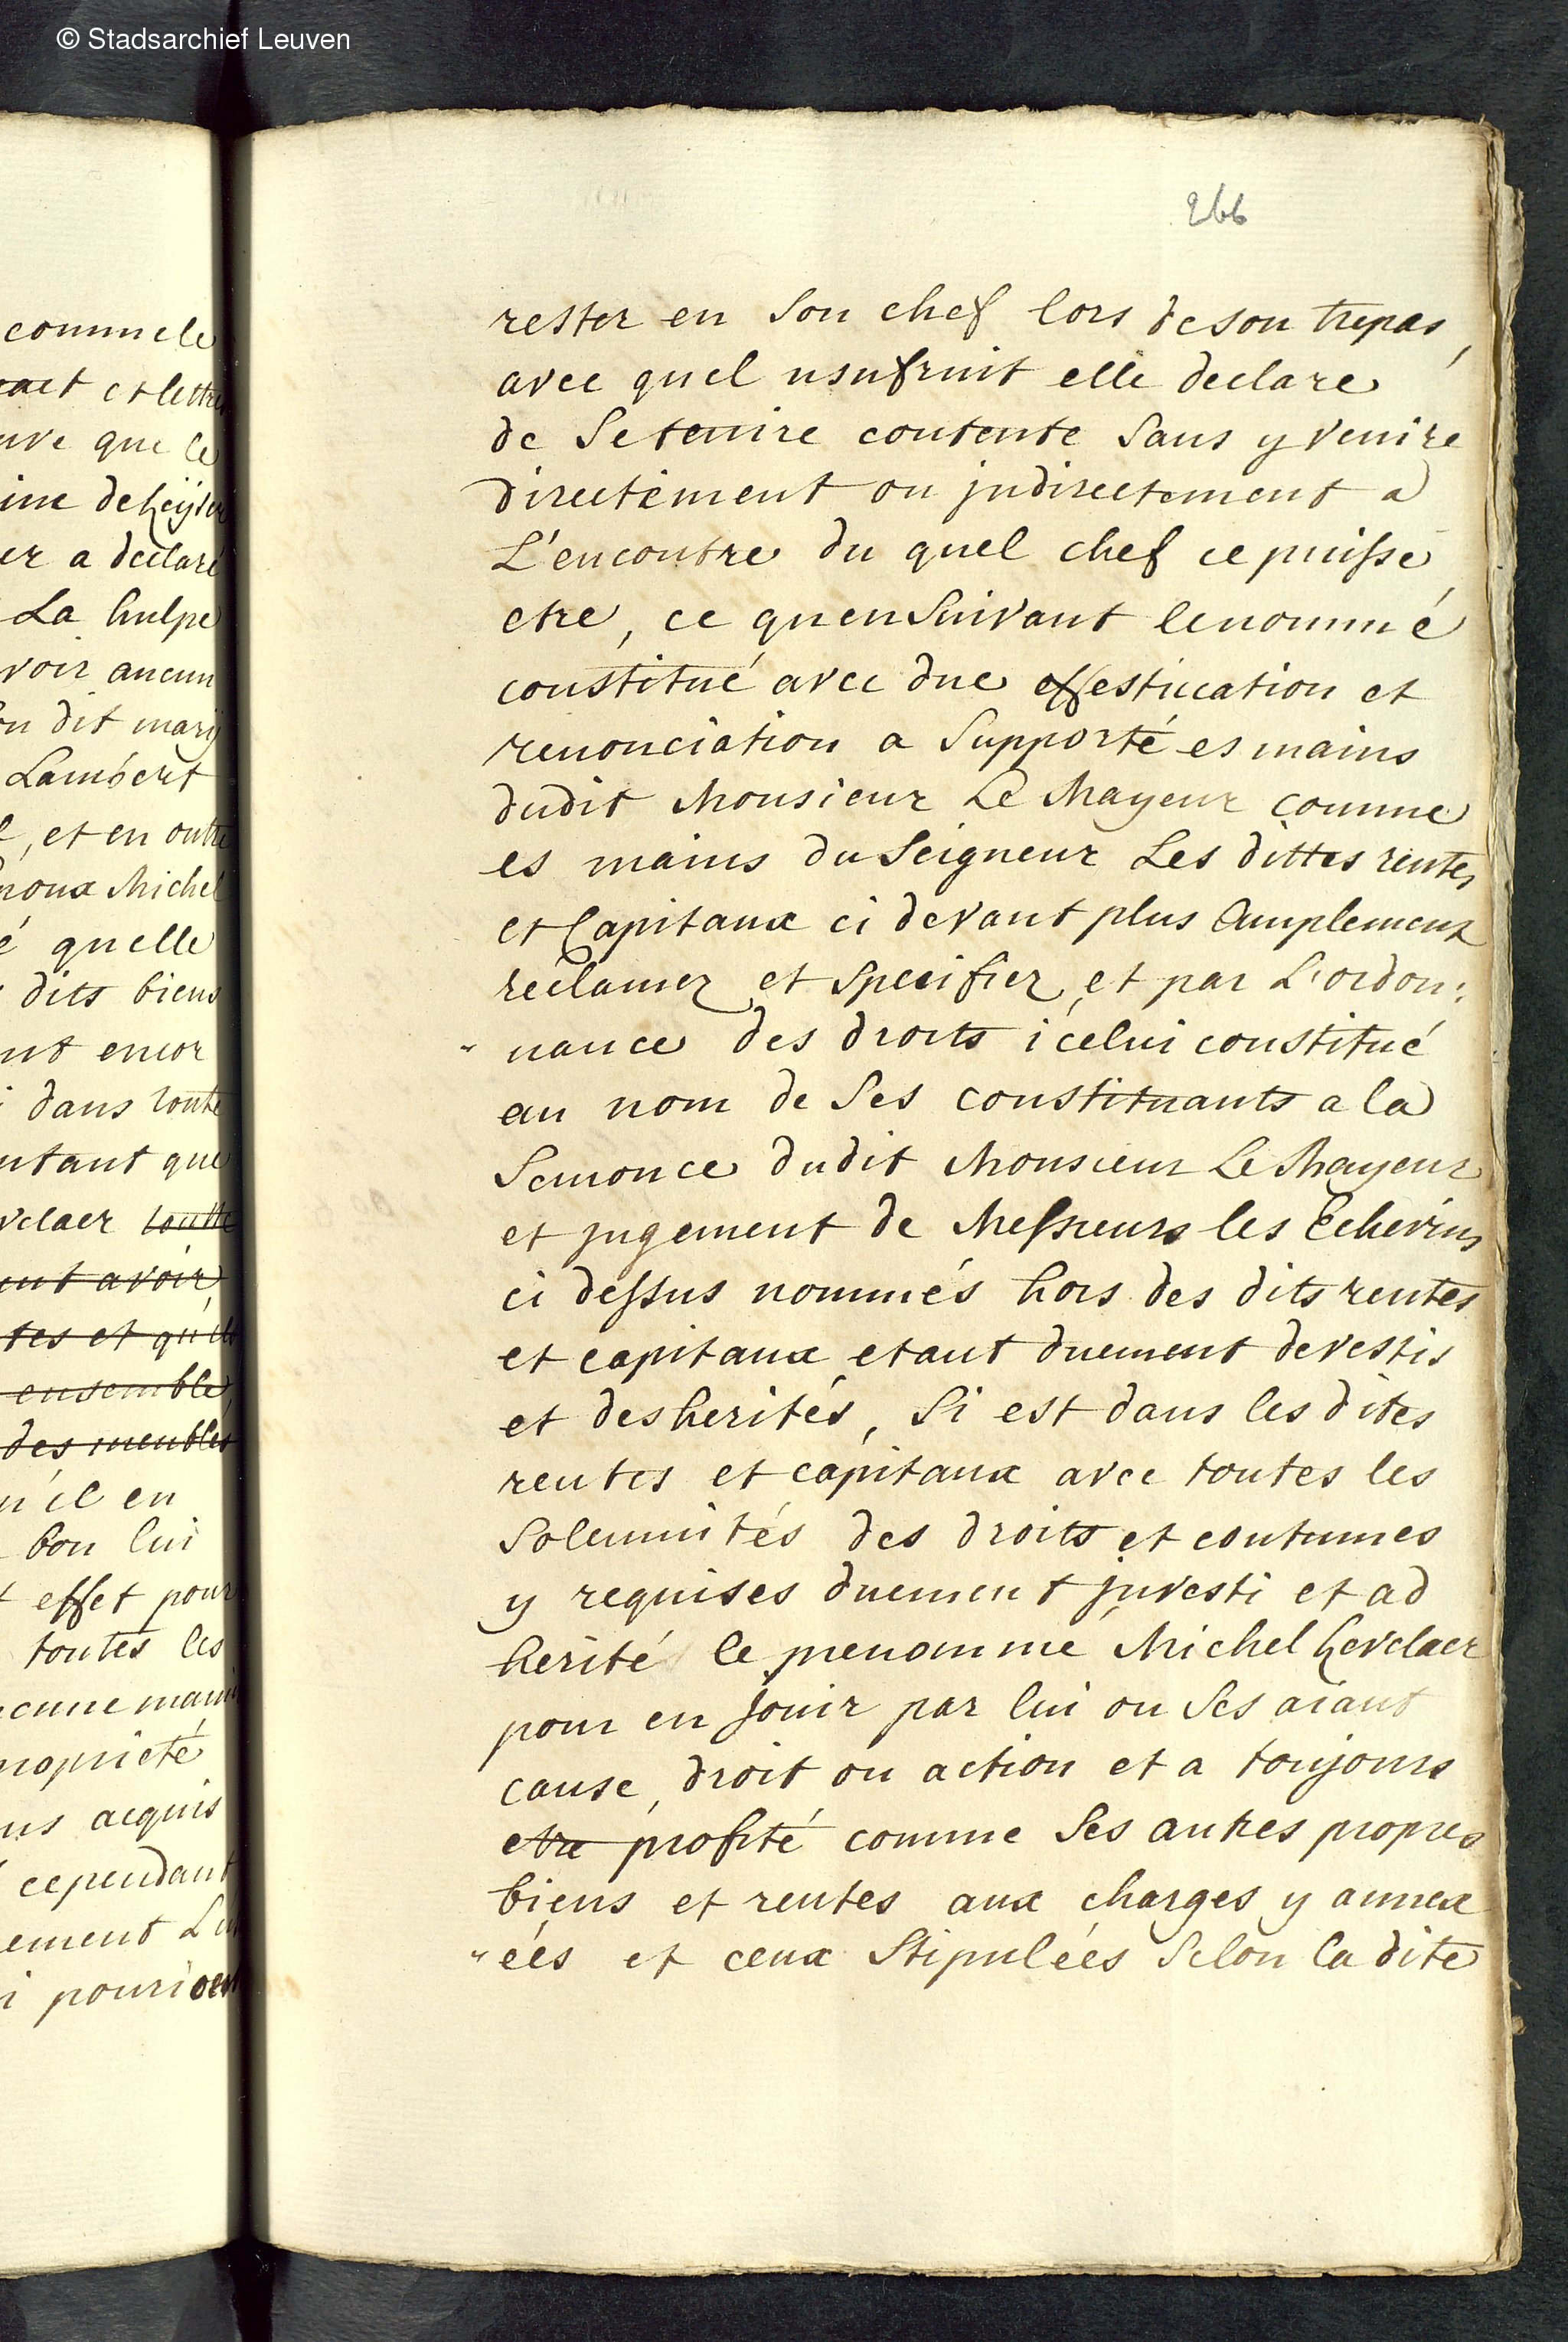 © Stadsarchief Leuven
comme le
et lettre
que le
de heijder
er a declaré
La hulpe
voir aucun
dit marij
Lambert
, et en outre
Michel
é quelle
dits biens
encor
dans toute
que
toutte
avoir
tes et quils
ensemble,
des meubles
il en
bon lui
effet pour
toutes les

acquis
cependant
266
rester en Son chef lors deson trepas,
avec quel usufruit elle declare
de Setenire contente Sans y venire
directement ou jndirectement a
L'encontre du quel chef ce puisse
etre, ce quensuivant lenommé
constitué avec due effestucation et
renonciation a Supporté es mains
dudit Monsieur Le Mayeur comme
es mains du Seigneur Les dittes rentes
et Capitaux ci devant plus amplement
reclamer et Specifier, et par L'ordon:
" nance des droits icelui constitué
au nom de Ses constituants a la
Semonce dudit Monsieur Le Mayeur
et jugement de Messieurs les Echevins
ci dessus nommés hors des dits rentes
et capitaux etant duement devestis
et desherités, Si est dans les dites
rentes et capitaux avec toutes les
Solemnités des droits et coutumes
y requises duement jnvesti et ad
herité le prenommé Michel hevelaer
pour en Jouir par lui ou Ses aiant
cause, droit ou action et a toujours
etre profité comme Ses autres propres
biens et rentes aux charges y annex
" ées et ceux Stipulées Selon la dite